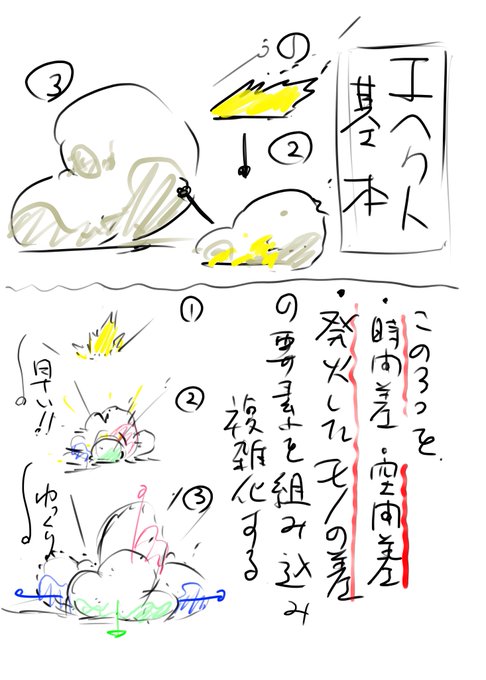 エヘクト
基本
①
②
③
この3つを
・時間差・空間差
・発火したモノの差
の要素を組み込み
複雑化する
①
②
③
早い!!
ゆっくり